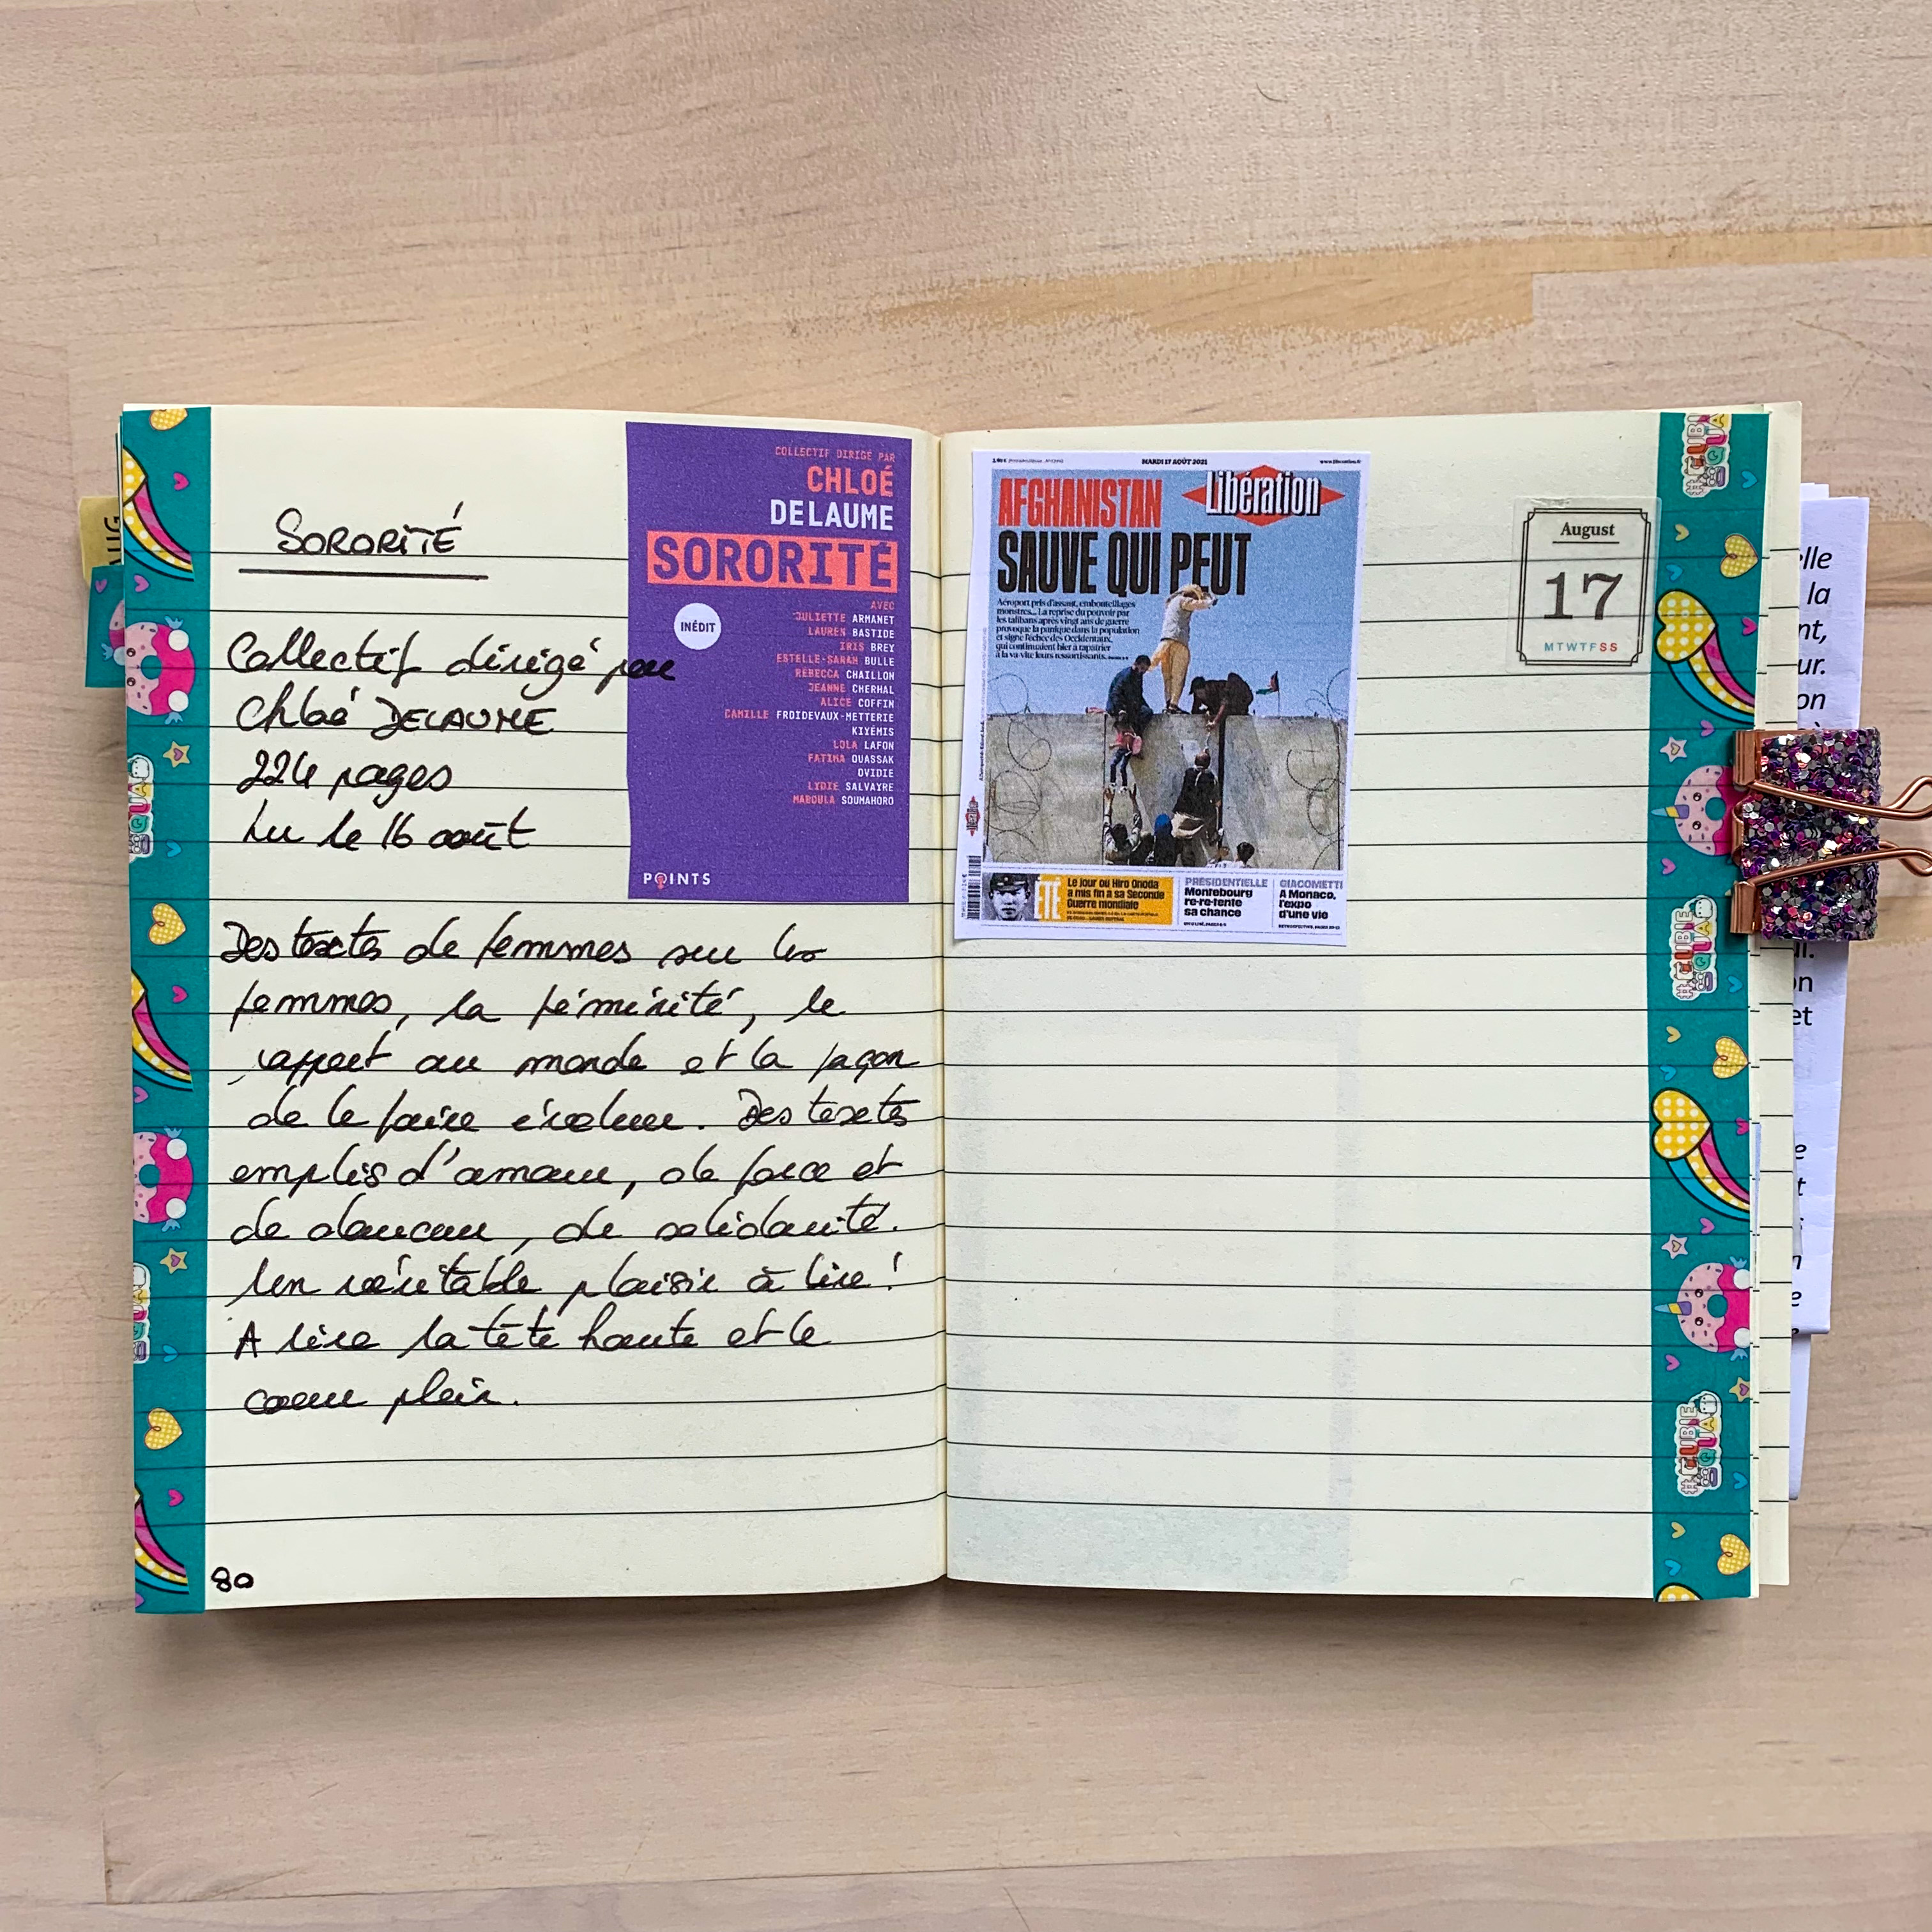 SORORITÉ
Collectif dirigé par
Chloé DELAUME
224 pages
Lu le 16 août
Des textes de femmes sur les
femmes, la féminité, le
rapport au monde et la façon
de le faire évoluer. Des textes
emplis d'amour, de force et
de douceur, de solidarité.
Un véritable plaisir à lire !
A lire la tête haute et le
coeur plein.
80
COLLECTIF DIRIGÉ PAR
CHLOÉ
DELAUME
SORORITÉ
INÉDIT
AVEC
JULIETTE ARMANET
LAUREN BASTIDE
IRIS BREY
ESTELLE-SARAH BULLE
RÉBECCA CHAILLON
JEANNE CHERHAL
ALICE COFFIN
CAMILLE FROIDEVAUX-METTERIE
KIYÉMIS
LOLA LAFON
FATIMA OUASSAK
OVIDIE
LYDIE SALVAYRE
MABOULA SOUMAHORO
POINTS
AUG
MARDI 17 AOÛT 2021
www.liberation.fr
Libération
AFGHANISTAN
SAUVE QUI PEUT
Aéroport pris d'assaut, embouteillages
monstres... La reprise du pouvoir par
les talibans après vingt ans de guerre
provoque la panique dans la population
et signe l'échec des Occidentaux,
qui continuaient hier à rapatrier
à la va-vite leurs ressortissants.
ÉTÉ
Le jour où Hiro Onoda
a mis fin à sa Seconde
Guerre mondiale
PRÉSIDENTIELLE
Montebourg
re-re-tente
sa chance
GIACOMETTI
A Monaco,
l'expo
d'une vie
August
17
MTWTFSS
elle
la
nt,
ur.
on
on
et
#CUBIE
SQUAD
#CUBIE
SQUAD
#CUBIE
SQUAD